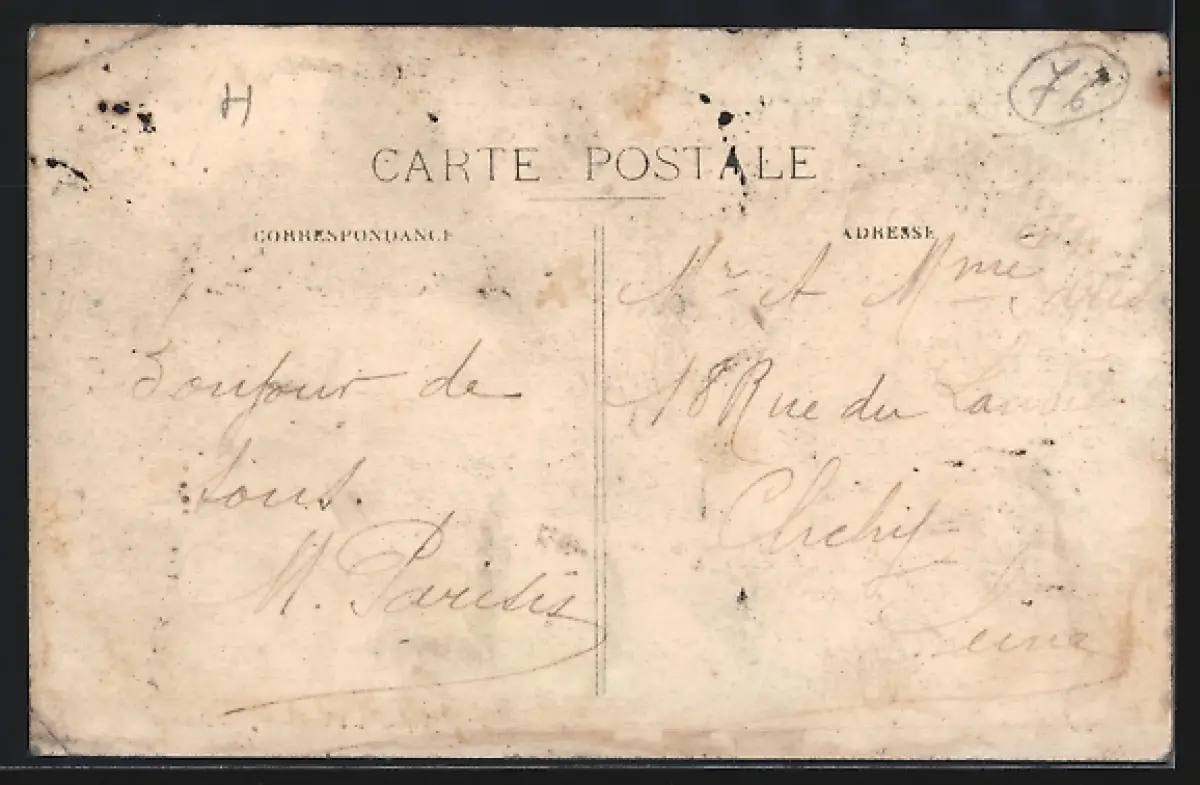 H
76
CARTE POSTALE
CORRESPONDANCE
ADRESSE
Bonjour de
tous.
M. Parisis
Mr et Mme
18 Rue du
Clichy
Seine